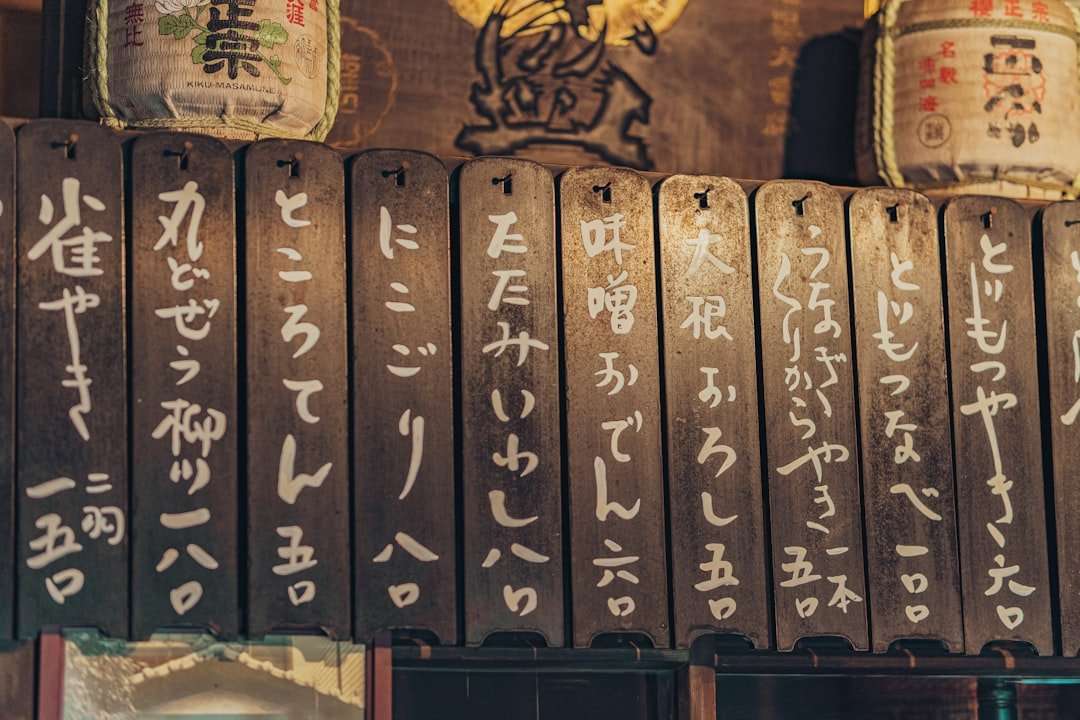 櫻正宗
正宗
無比
KIKU-MASAMUNE
とりもつやき 六〇
とりもつなべ 一〇〇
うなぎ
くりからやき
一本
五〇
大根おろし 五〇
味噌おでん 六〇
たたみいわし 八〇
にこごり 八〇
ところてん 五〇
丸どぜう柳川 一八〇
雀やき
二羽
一五〇